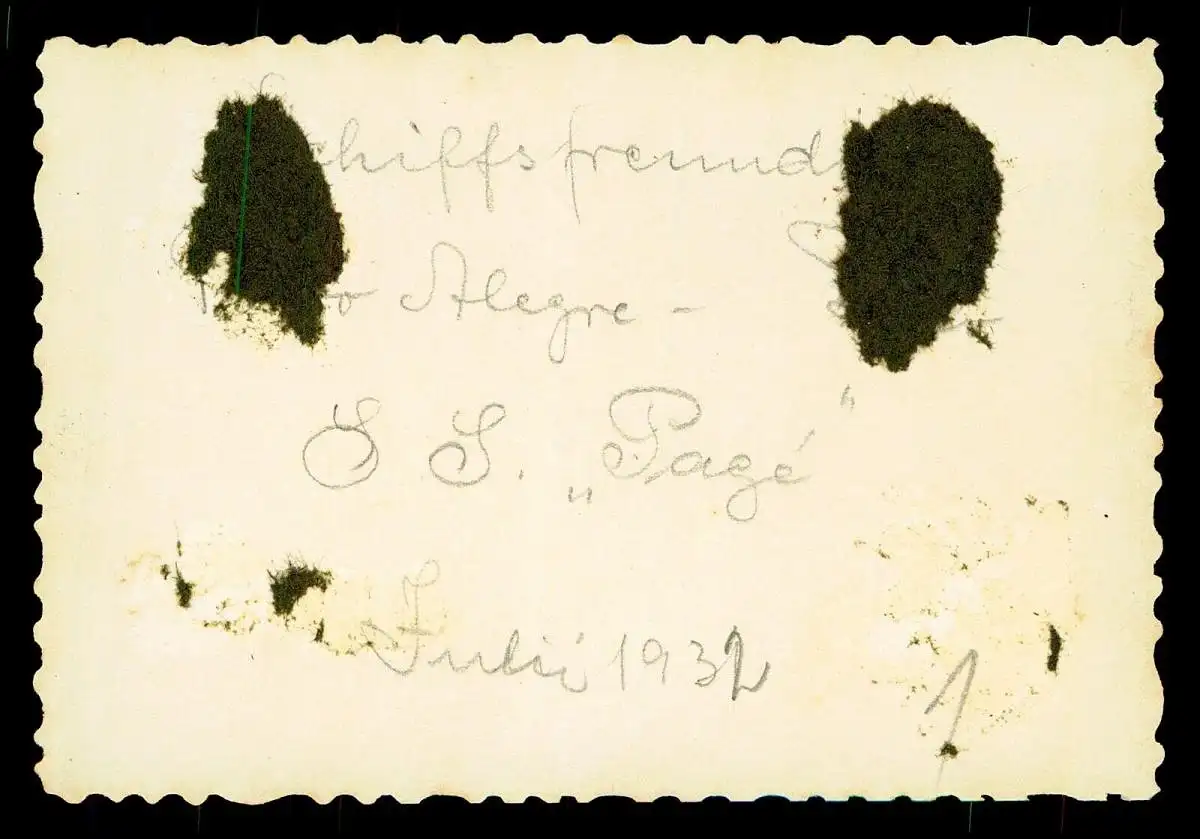 chiffsfreund
o Alegre -
S S. „Pagé"
Juli 1932
1